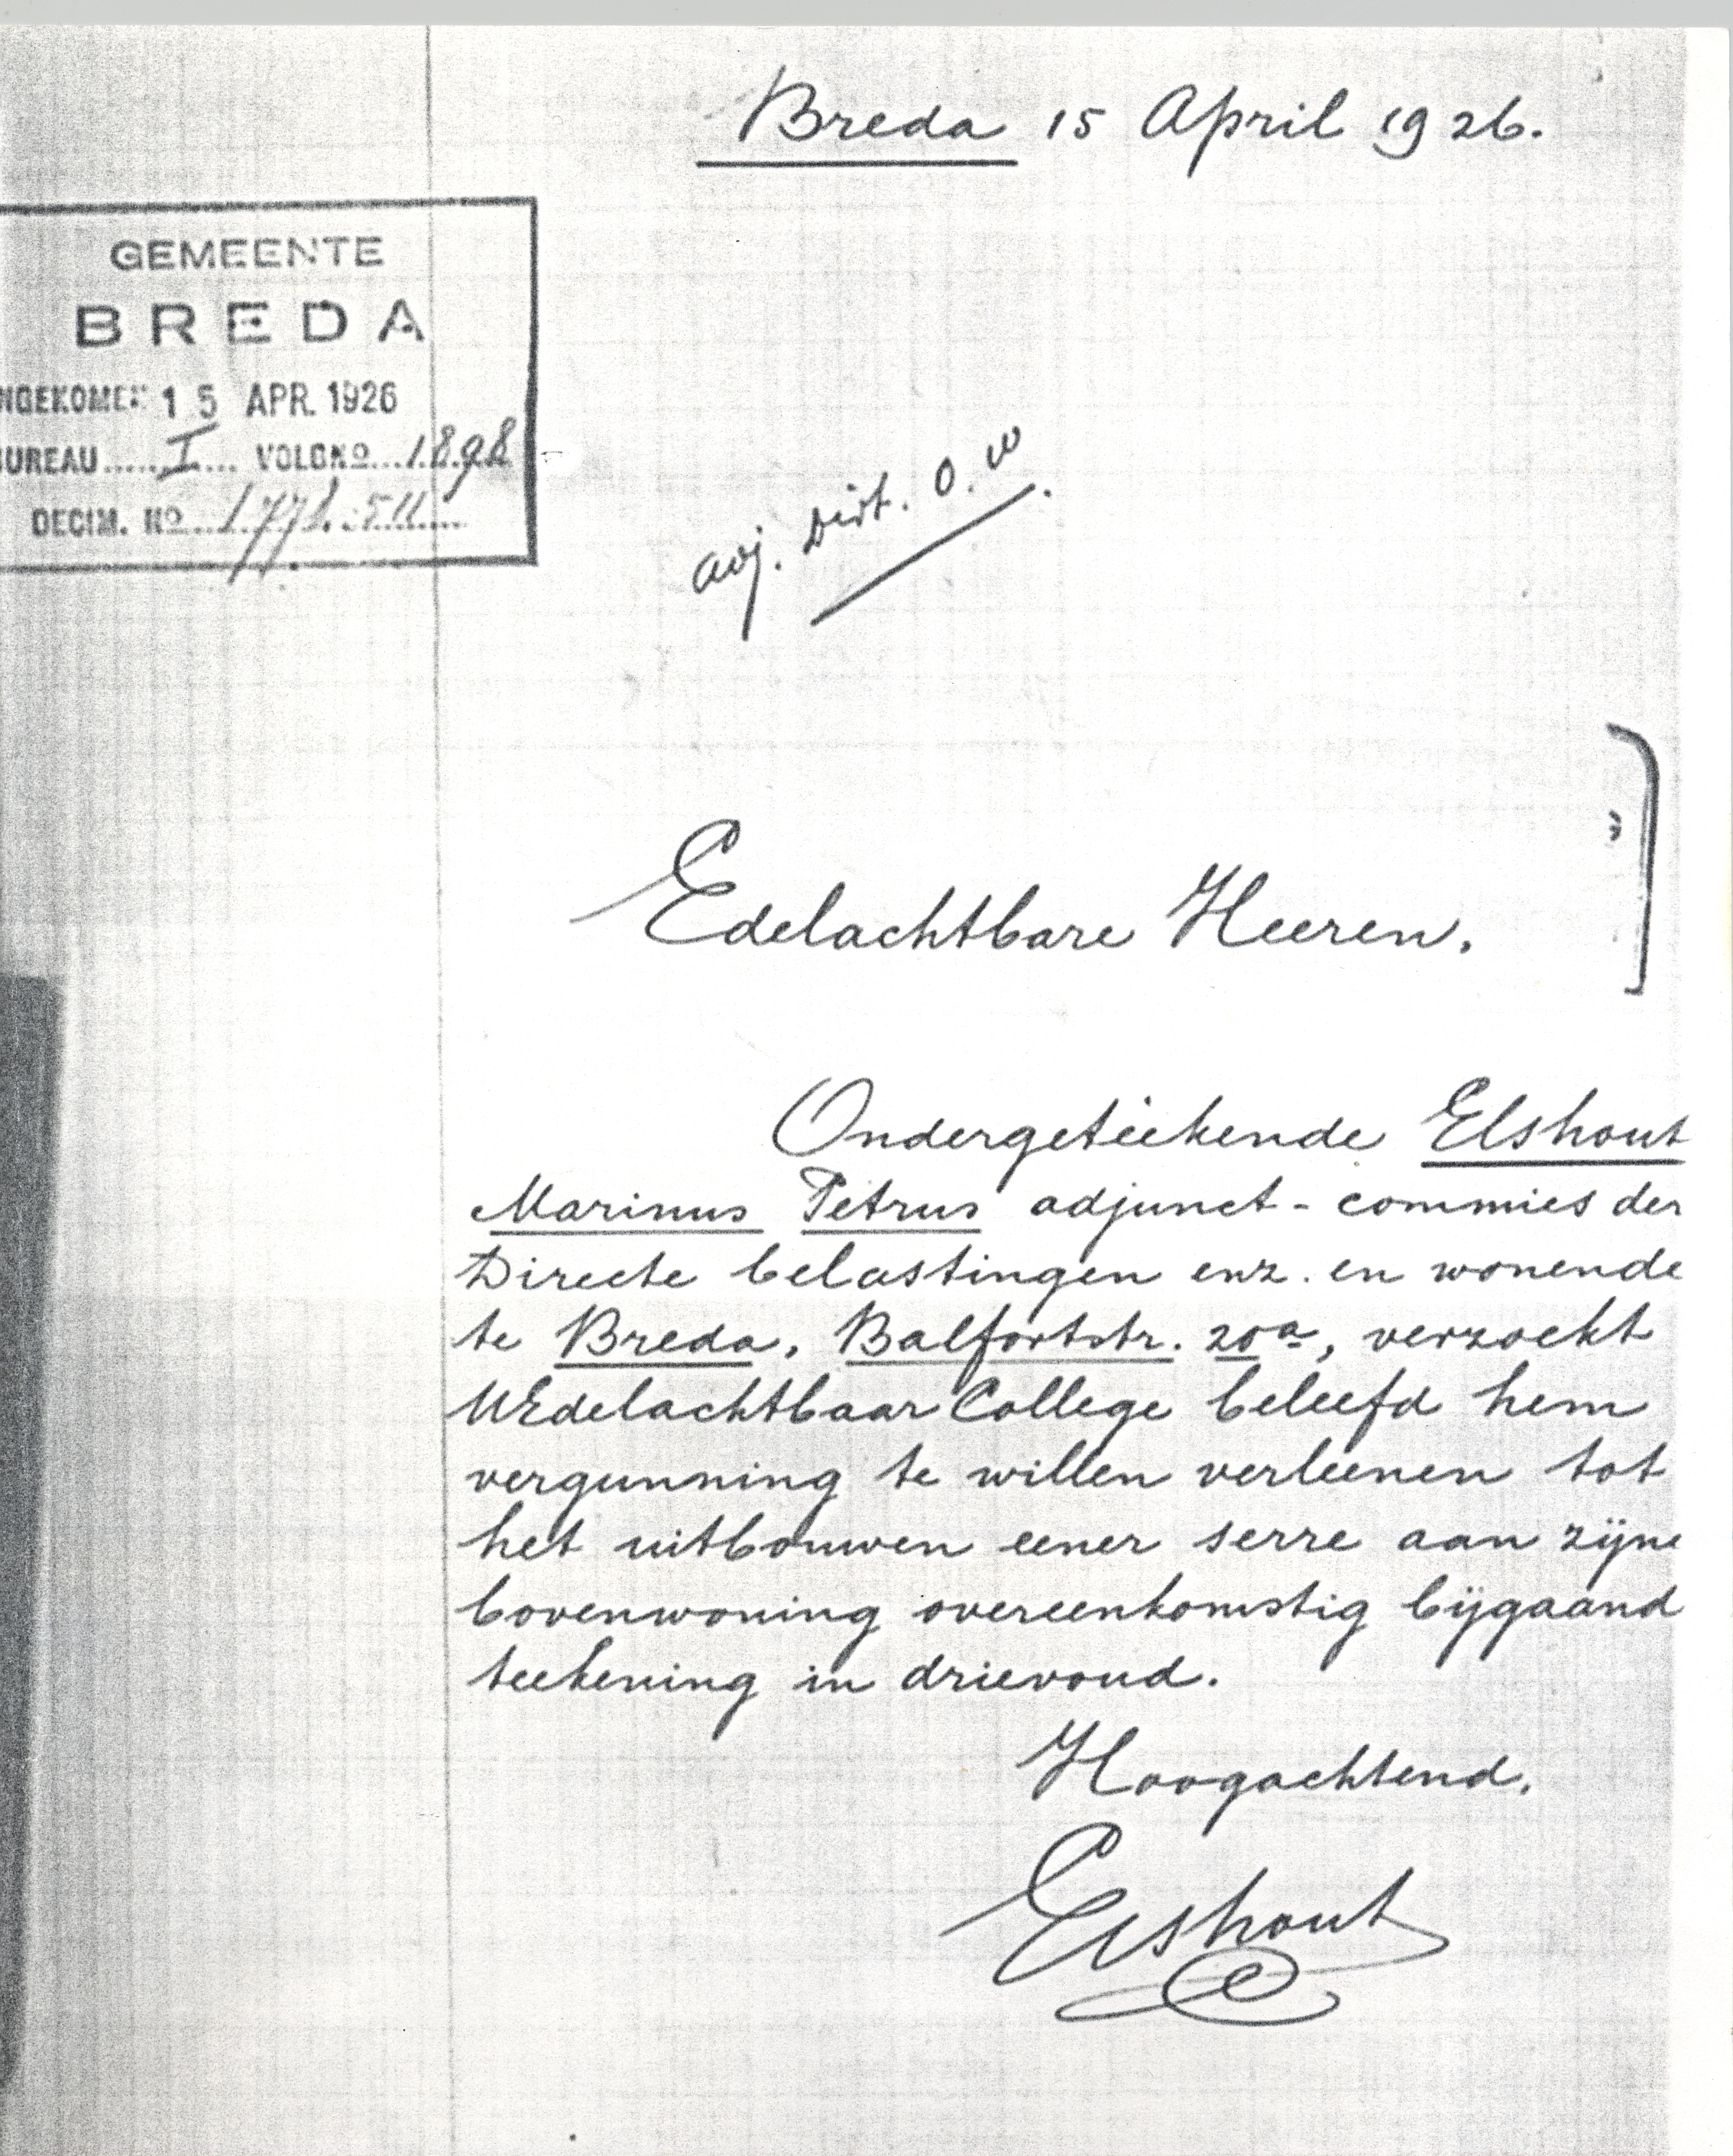 Breda 15 April 1926.
GEMEENTE
BREDA
NGEKOMEN 15 APR. 1926
BUREAU I VOLGNo 1898
DECIM. No
adj. Dirt. O. W.
Edelachtbare Heeren,
Ondergeteekende Elshout
Marinus Petrus adjunct-commies der
Directe belastingen enz. en wonende
te Breda, Balfortstr. 20a, verzoekt
UEdelachtbaar College beleefd hem
vergunning te willen verleenen tot
het uitbouwen eener serre aan zijne
bovenwoning overeenkomstig bijgaand
teekening in drievoud.
Hoogachtend,
Elshout